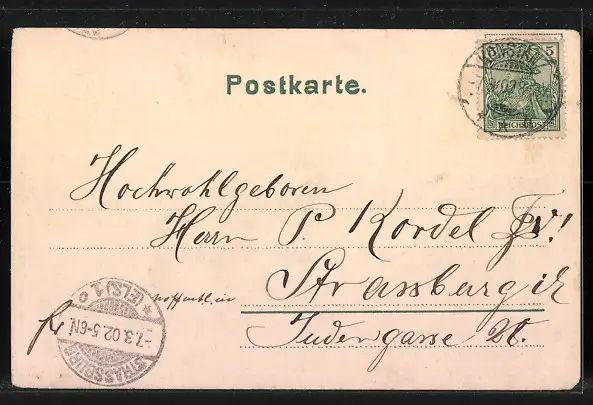 Postkarte.
5
REICHSPOST
Hochwohlgeboren
Herrn P. Kordel
Strassburg i/E
Judengasse 20.
STRASSBURG
-7.3.02.5-6N.
*(ELS)1.c